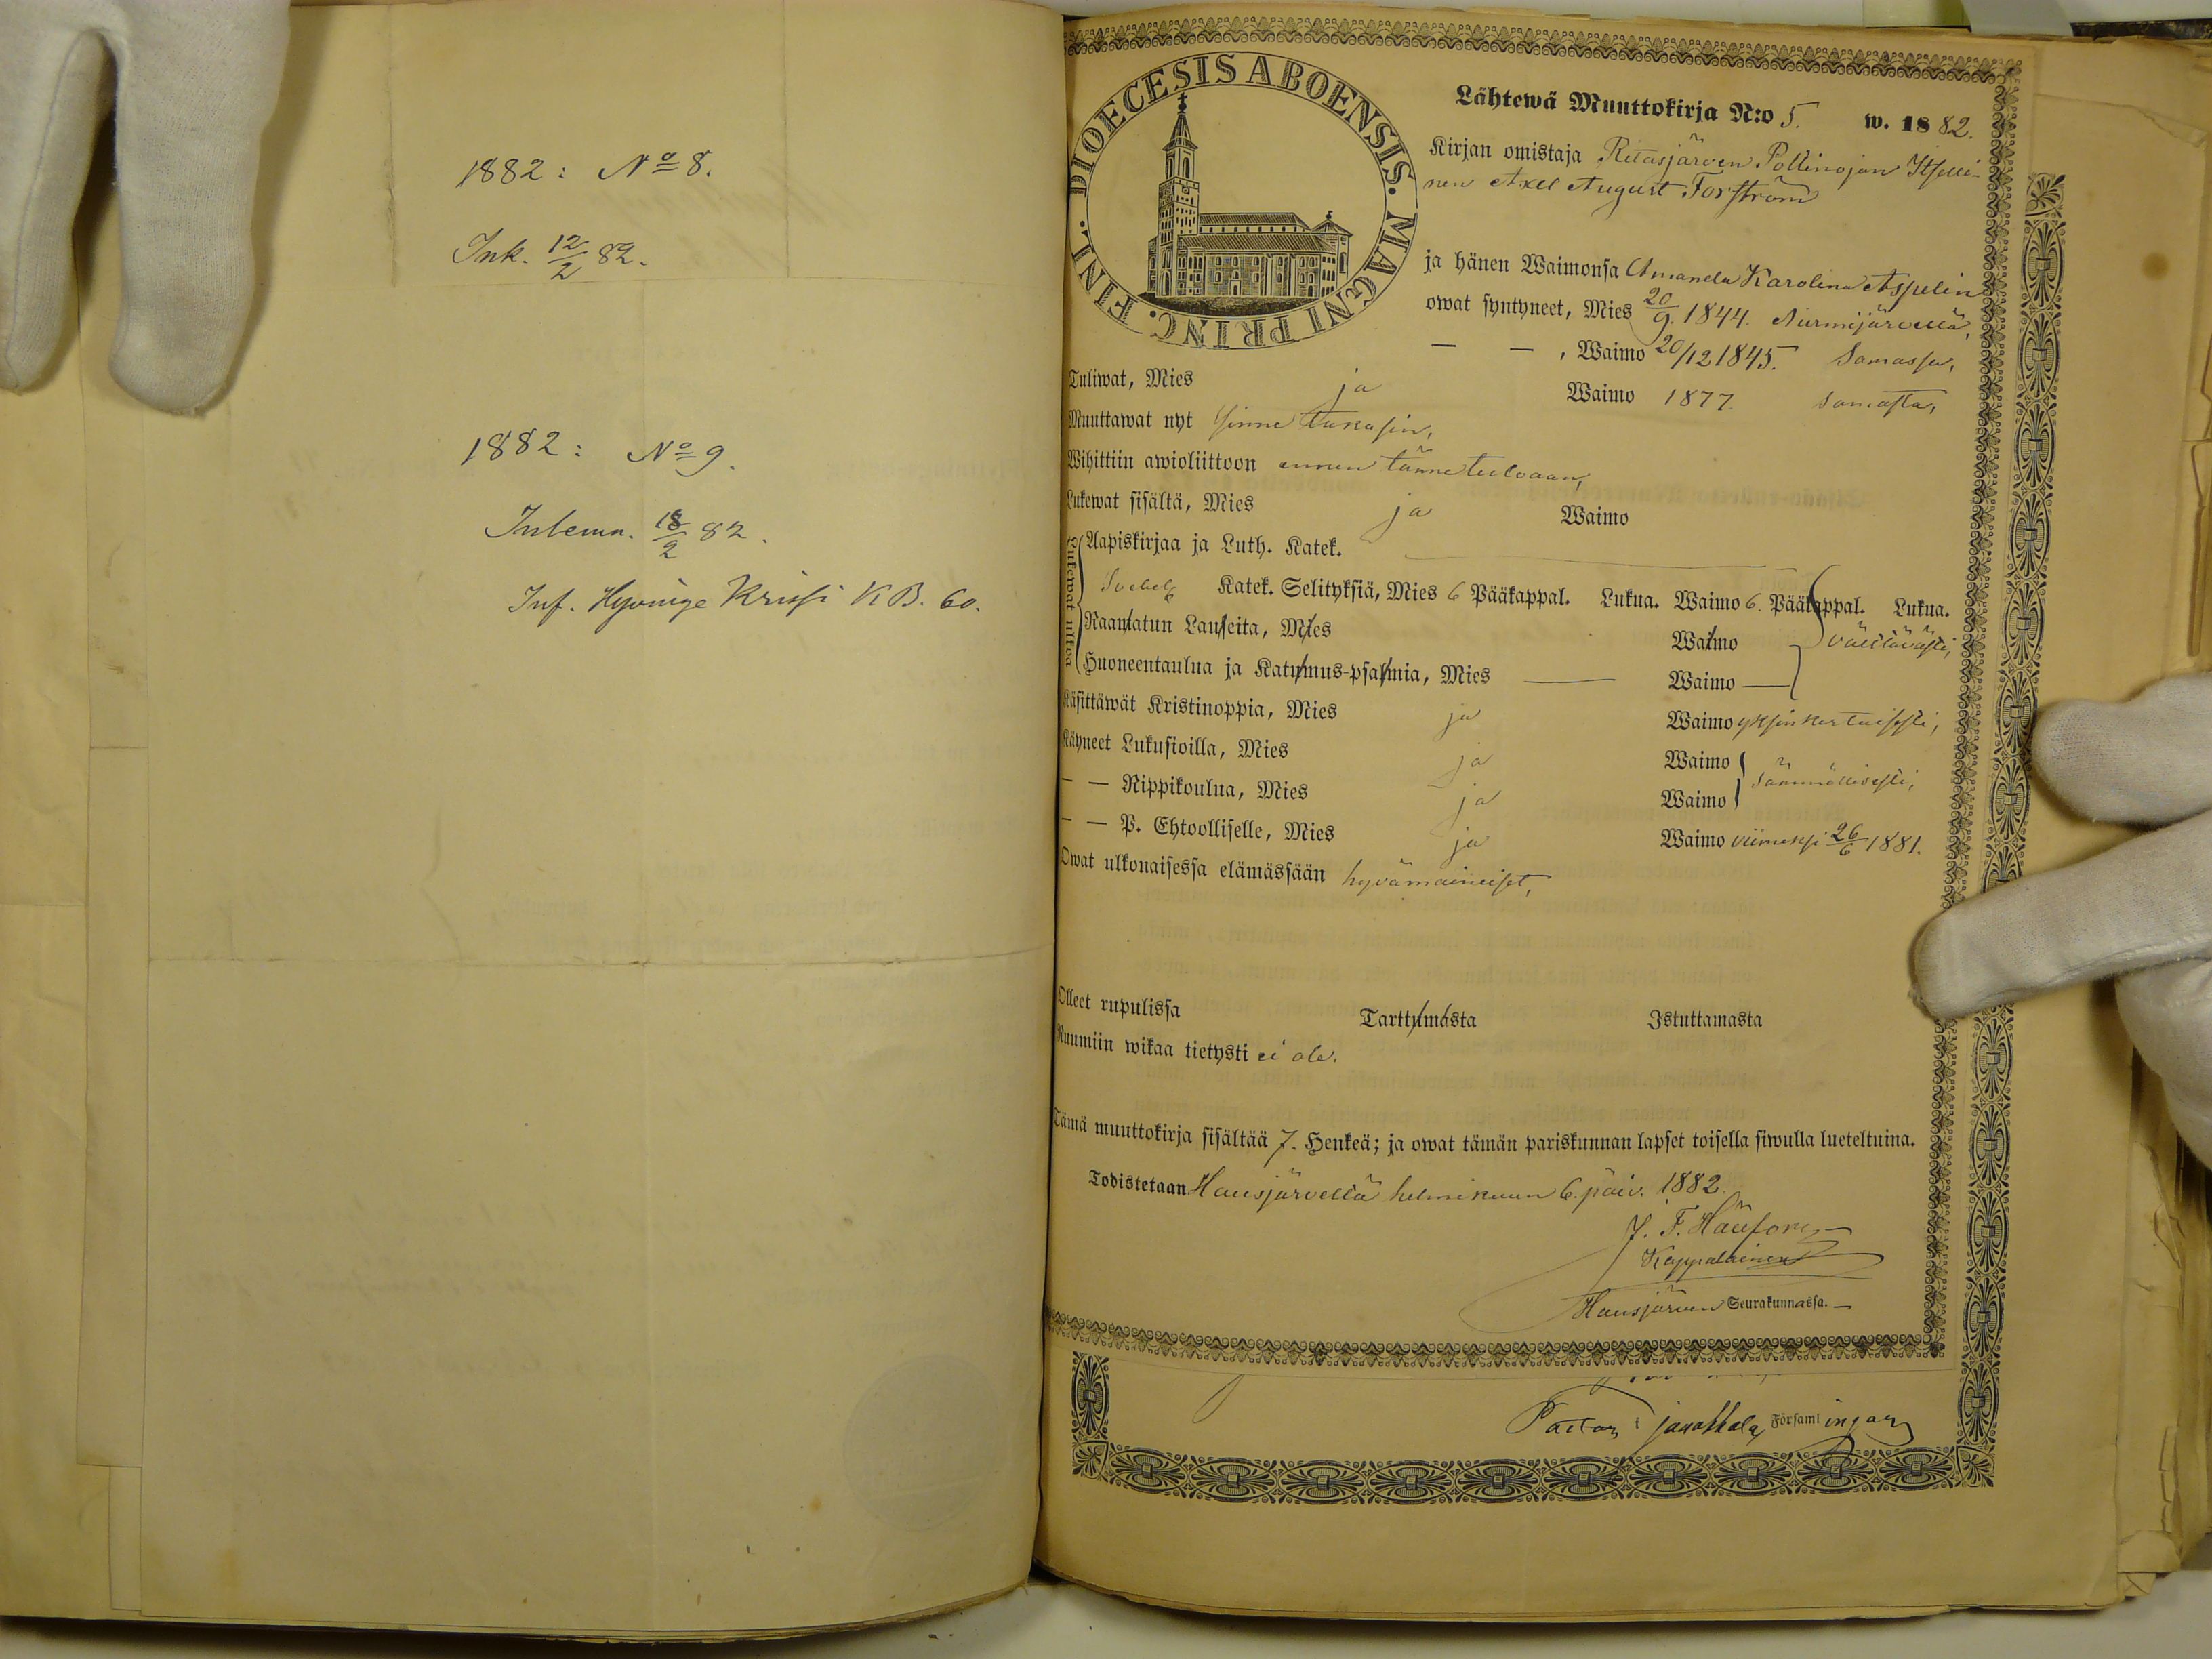 1882: No 8.
Ink. 12/2 82.
1882: No 9.
Inlemn. 18/2 82.
Inf. Hyvinge Krusi KB. 60.
DIOECESIS ABOENSIS. MAGNI PRINC. FINL.
Lähtewä Muuttokirja N:o 5. w. 1882.
Kirjan omistaja Ritasjärven Pollinojan Itselli-
nen Axel August Forsström
ja hänen Waimonsa Amanda Karolina Aspelin
owat syntyneet, Mies 20/9. 1844. Nurmijärvellä,
— — , Waimo 20/12 1845. Samassa,
Tuliwat, Mies ja Waimo 1877. samasta,
Muuttawat nyt sinne takasin,
Wihittiin awioliittoon ennen tänne tuloaan,
Lukewat sisältä, Mies ja Waimo
Lukewat ulkoa
Aapiskirjaa ja Luth. Katek.
Svebel. Katek. Selityksiä, Mies 6 Pääkappal. Lukua. Waimo 6. Pääkappal. Lukua.
Raamatun Lauseita, Mies Waimo välttävästi,
Huoneentaulua ja Katumus-psalmia, Mies — Waimo —
Käsittäwät Kristinoppia, Mies ja Waimo yksinkertaisesti,
Käyneet Lukusioilla, Mies ja Waimo
— — Rippikoulua, Mies ja Waimo säännöllisesti,
— — P. Ehtoolliselle, Mies ja Waimo viimeksi 26/6 1881.
Owat ulkonaisessa elämässään hyvämaineiset,
Olleet rupulissa Tarttumasta Istuttamasta
Ruumiin wikaa tietysti ei ole.
Tämä muuttokirja sisältää 7. Henkeä; ja owat tämän pariskunnan lapset toisella siwulla lueteltuina.
Todistetaan Hausjärvellä helmikuun 6. päiv. 1882.
J. F. Hällfors
Kappalainen
Hausjärven Seurakunnassa.
Pastor i Janakkala Församlingar